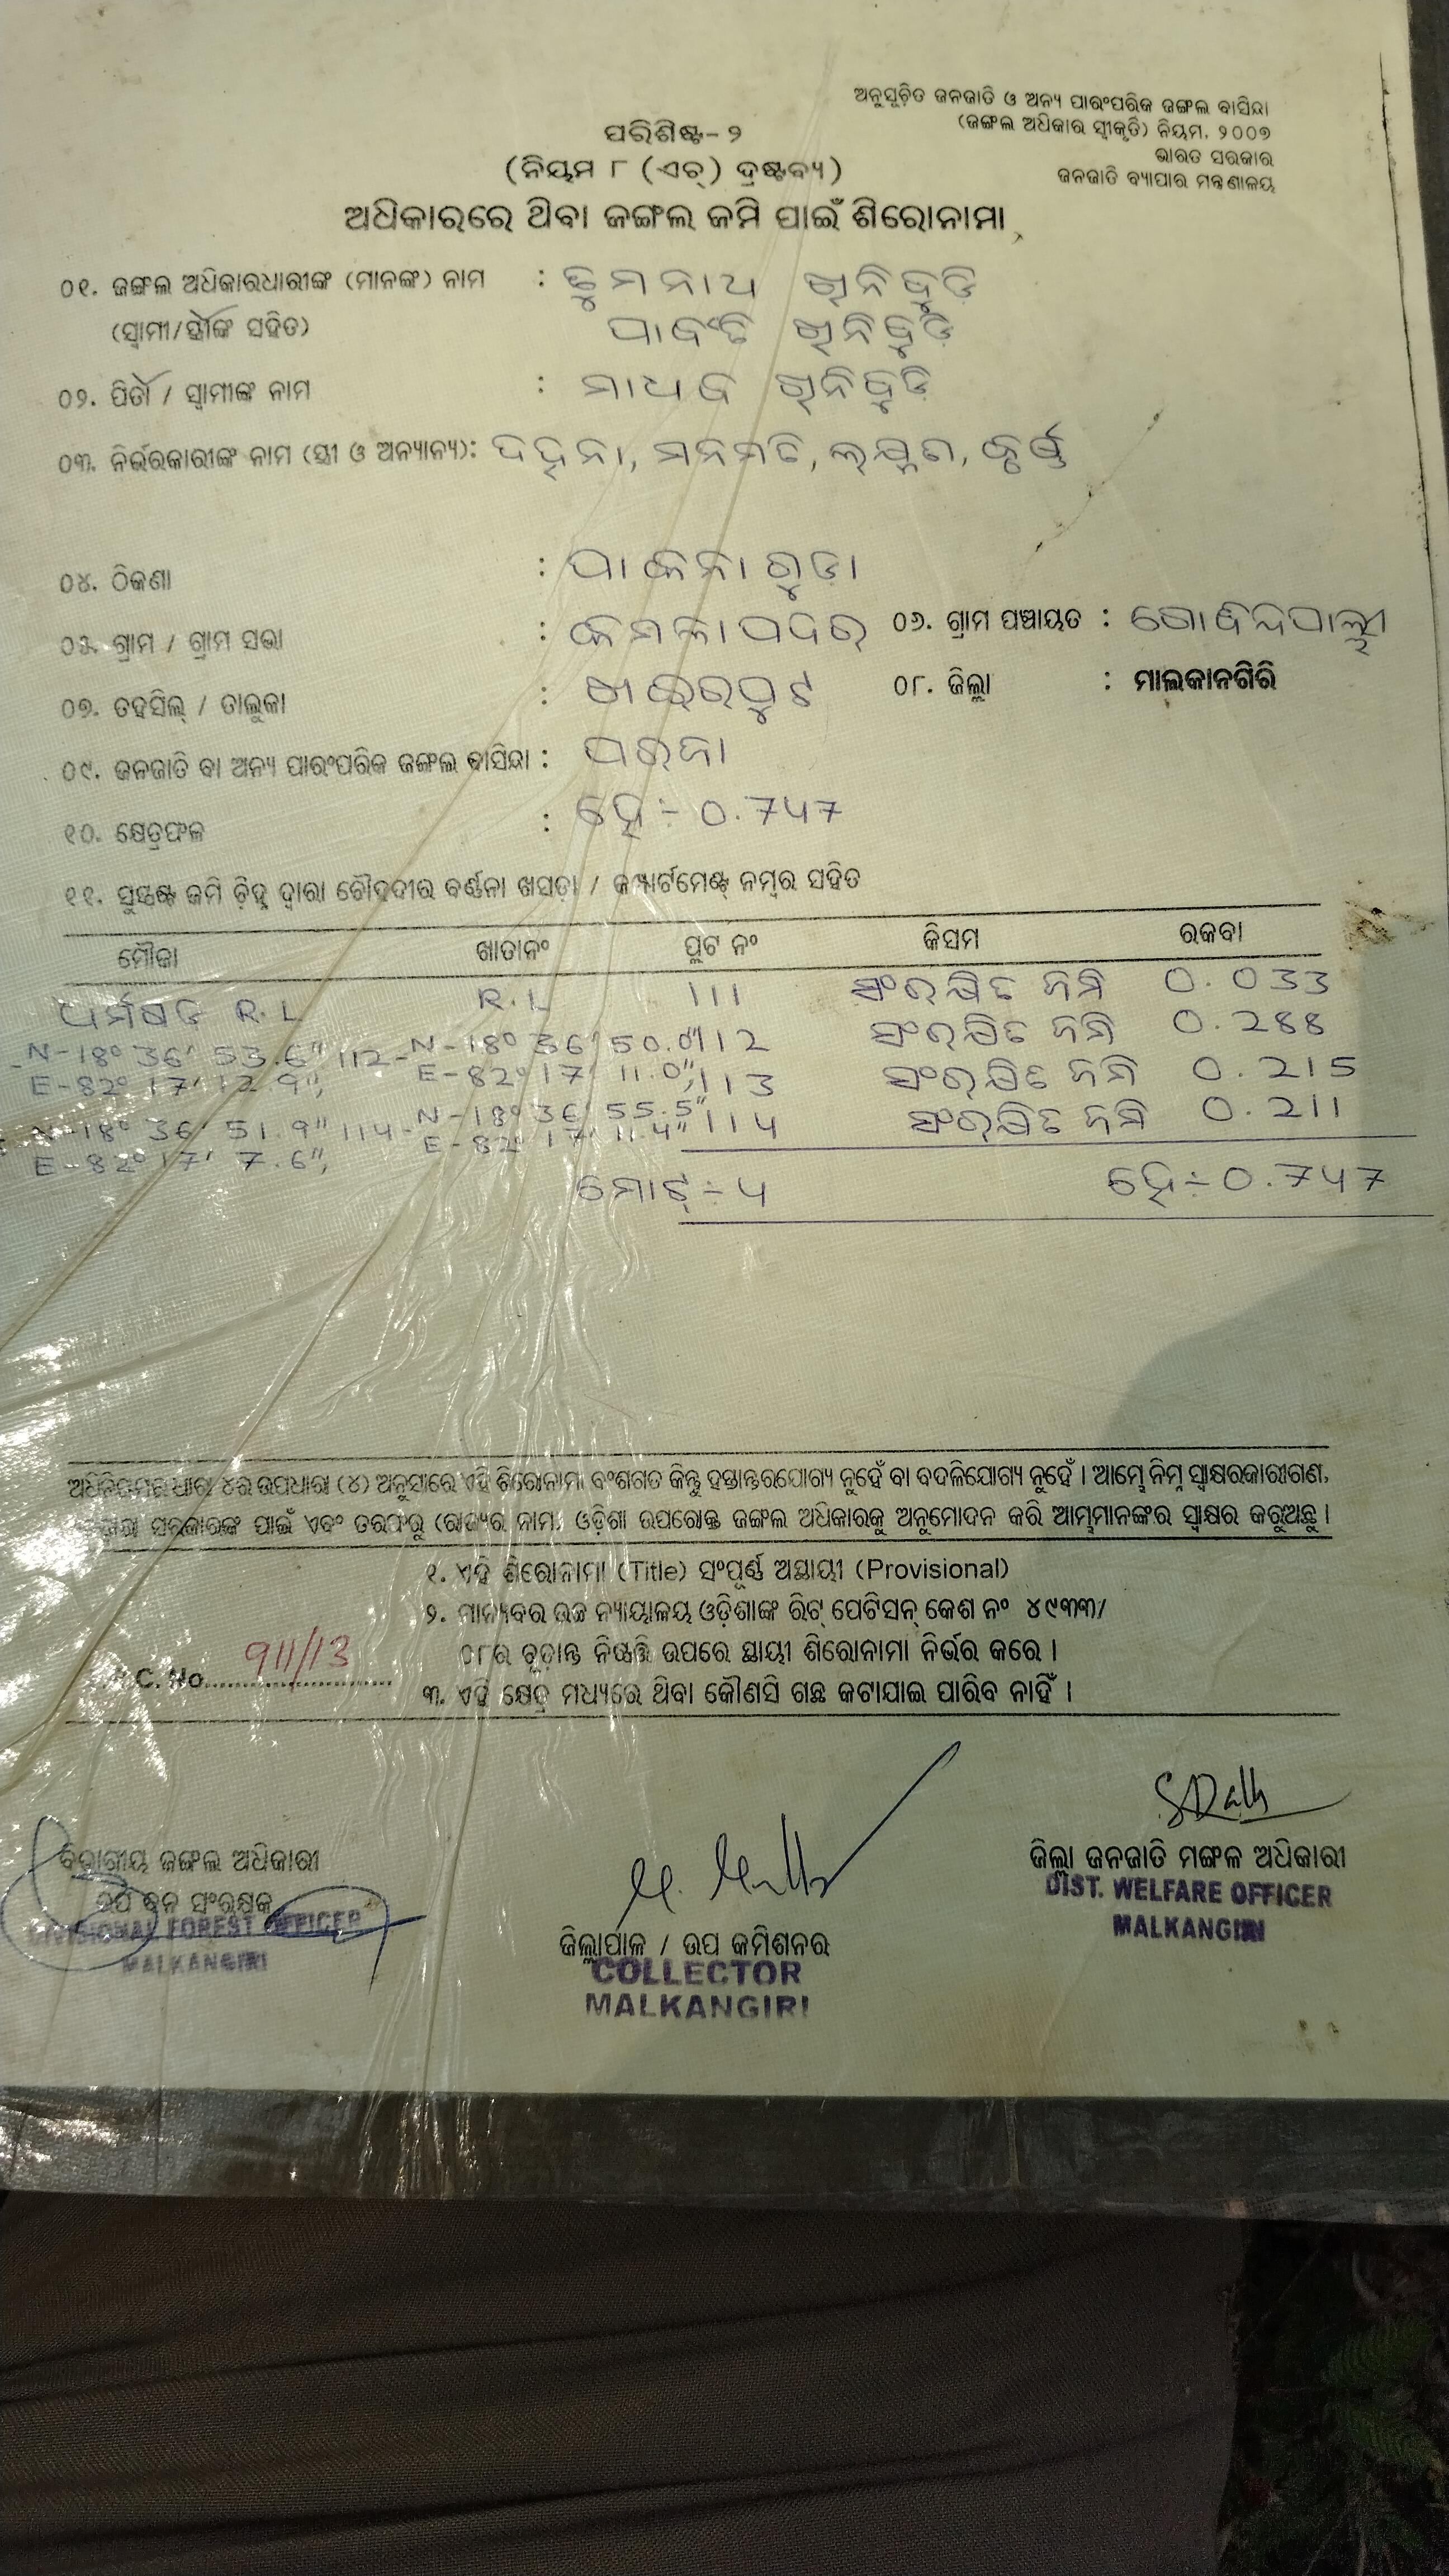 ଅନୁସୂଚିତ ଜନଜାତି ଓ ଅନ୍ୟ ପାରଂପରିକ ଜଙ୍ଗଲ ବାସିନ୍ଦା
(ଜଙ୍ଗଲ ଅଧିକାର ସ୍ୱୀକୃତି) ନିୟମ, ୨୦୦୭
ଭାରତ ସରକାର
ଜନଜାତି ବ୍ୟାପାର ମନ୍ତ୍ରଣାଳୟ
ପରିଶିଷ୍ଟ-୨
(ନିୟମ ୮ (ଏଚ୍) ଦ୍ରଷ୍ଟବ୍ୟ)
ଅଧିକାରରେ ଥିବା ଜଙ୍ଗଲ ଜମି ପାଇଁ ଶିରୋନାମା
୦୧. ଜଙ୍ଗଲ ଅଧିକାରଧାରୀଙ୍କ (ମାନଙ୍କ) ନାମ :
(ସ୍ୱାମୀ/ସ୍ତ୍ରୀଙ୍କ ସହିତ) ପାର୍ବତି
୦୨. ପିତା / ସ୍ୱାମୀଙ୍କ ନାମ : ମାଧବ
୦୩. ନିର୍ଭରକାରୀଙ୍କ ନାମ (ସ୍ତ୍ରୀ ଓ ଅନ୍ୟାନ୍ୟ): ମନମତି,
୦୪. ଠିକଣା : ପାକନାଗୁଡ଼ା
୦୫. ଗ୍ରାମ / ଗ୍ରାମ ସଭା : କମଳାପଦର ୦୬. ଗ୍ରାମ ପଞ୍ଚାୟତ : ଗୋବିନ୍ଦପାଲ୍ଲୀ
୦୭. ତହସିଲ୍ / ତାଲୁକା : ଖଇରପୁଟ ୦୮. ଜିଲ୍ଲା : ମାଲକାନଗିରି
୦୯. ଜନଜାତି ବା ଅନ୍ୟ ପାରଂପରିକ ଜଙ୍ଗଲ ବାସିନ୍ଦା : ପରଜା
୧୦. କ୍ଷେତ୍ରଫଳ : ହେ÷0.747
୧୧. ସୁସ୍ପଷ୍ଟ ଜମି ଚିହ୍ନ ଦ୍ୱାରା ଚୌହଦୀର ବର୍ଣ୍ଣନା ଖସଡ଼ା / କମ୍ପାର୍ଟମେଣ୍ଟ୍ ନମ୍ବର ସହିତ
ମୌଜା ଖାତାନଂ ପ୍ଲଟ ନଂ କିସମ ରକବା
R.L R.L 111 ସଂରକ୍ଷିତ ଜମି 0.033
N-18° 36' 53.6" 112- N-18° 36' 50.0" 112 ସଂରକ୍ଷିତ ଜମି 0.288
E-82° 17' 12.9", E-82° 17' 11.0", 113 ସଂରକ୍ଷିତ ଜମି 0.215
N-18° 36' 51.9" 114- N-18° 36' 55.5" 114 ସଂରକ୍ଷିତ ଜମି 0.211
E-82° 17' 7.6", E-82° 17' 11.4"
ମୋଟ୍÷4 ହେ÷0.747
ଅଧିନିୟମର ଧାରା ୪ର ଉପଧାରା (୪) ଅନୁସାରେ ଏହି ଶିରୋନାମା ବଂଶଗତ କିନ୍ତୁ ହସ୍ତାନ୍ତରଯୋଗ୍ୟ ନୁହେଁ ବା ବଦଳିଯୋଗ୍ୟ ନୁହେଁ । ଆମ୍ଭେ ନିମ୍ନ ସ୍ୱାକ୍ଷରକାରୀଗଣ,
ସରକାରଙ୍କ ପାଇଁ ଏବଂ ତରଫରୁ (ରାଜ୍ୟର ନାମ) ଓଡ଼ିଶା ଉପରୋକ୍ତ ଜଙ୍ଗଲ ଅଧିକାରକୁ ଅନୁମୋଦନ କରି ଆମ୍ଭମାନଙ୍କର ସ୍ୱାକ୍ଷର କରୁଅଛୁ ।
୧. ଏହି ଶିରୋନାମା (Title) ସଂପୂର୍ଣ୍ଣ ଅସ୍ଥାୟୀ (Provisional)
୨. ମାନ୍ୟବର ଉଚ୍ଚ ନ୍ୟାୟାଳୟ ଓଡ଼ିଶାଙ୍କ ରିଟ୍ ପେଟିସନ୍ କେଶ ନଂ ୪୯୩୩/
୦୮ର ଚୂଡ଼ାନ୍ତ ନିଷ୍ପତ୍ତି ଉପରେ ସ୍ଥାୟୀ ଶିରୋନାମା ନିର୍ଭର କରେ ।
C. No. 911/13
୩. ଏହି କ୍ଷେତ୍ର ମଧ୍ୟରେ ଥିବା କୌଣସି ଗଛ କଟାଯାଇ ପାରିବ ନାହିଁ ।
ବିଭାଗୀୟ ଜଙ୍ଗଲ ଅଧିକାରୀ
ଉପ ବନ ସଂରକ୍ଷକ
DIVISIONAL FOREST OFFICER
MALKANGIRI
ଜିଲ୍ଲାପାଳ / ଉପ କମିଶନର
COLLECTOR
MALKANGIRI
ଜିଲ୍ଲା ଜନଜାତି ମଙ୍ଗଳ ଅଧିକାରୀ
DIST. WELFARE OFFICER
MALKANGIRI